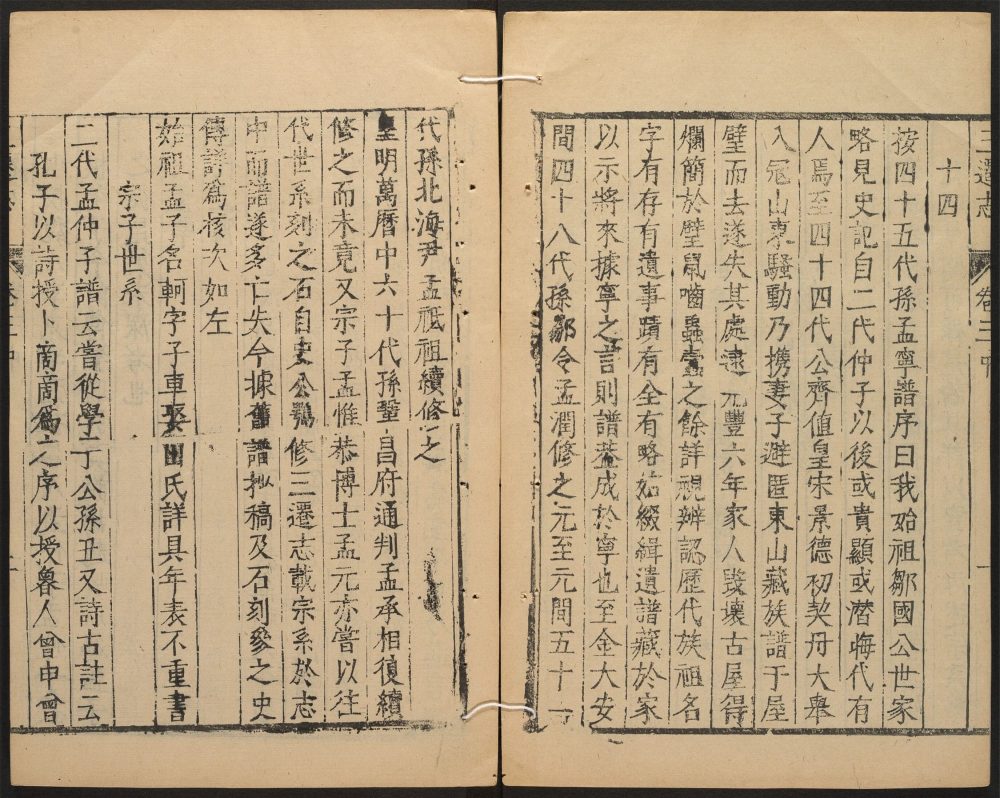 三遷志　卷三中　一
十四
按四十五代孫孟寧譜序曰我始祖鄒國公世家
略見史記自二代仲子以後或貴顯或潛晦代有
人焉至四十四代公齊值皇宋景德初契丹大舉
入冦山東騷動乃携妻子避匿東山藏族譜于屋
壁而去遂失其處逮元豐六年家人毀壞古屋得
爛簡於壁鼠嚙蟲蠹之餘詳視辨認歷代族祖名
字有存有遺事蹟有全有略姑綴緝遺譜藏於家
以示將來據寧之言則譜葢成於寧也至金大安
間四十八代孫鄒令孟潤修之元至元間五十一
代孫北海尹孟祖祖續修之
皇明萬曆中六十代孫鞏昌府通判孟承相復續
修之而未竟又宗子孟惟恭博士孟元亦嘗以往
代世系刻之石自史公鶚修三遷志載宗系於志
中而譜遂多亡失今據舊譜拟稿及石刻參之史
傳詳爲核次如左
始祖孟子名軻字子車娶田氏詳具年表不重書
宗子世系
二代孟仲子譜云嘗從學丁公孫丑又詩古註云
孔子以詩授卜商商爲之序以授魯人曾申曾